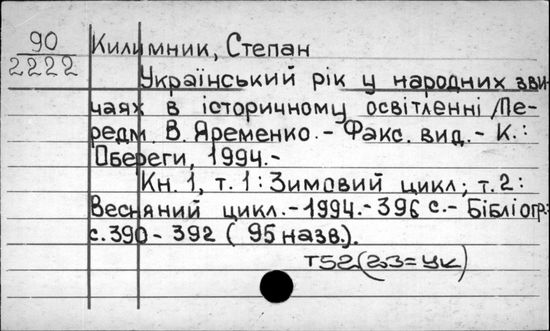 90 Килимник, Степан
2222
Український рік у народних зви-
чаях в історичному освітленні /Пе-
редм. В. Яременко. - Факс. вид. - К.:
Обереги, 1994.-
Кн. 1, т. 1: Зимовий цикл; т. 2:
Весняний цикл. - 1994. - 396 с. - Бібліогр.:
с. 390 - 392 ( 95 назв.).
Т52(2.3=УК)